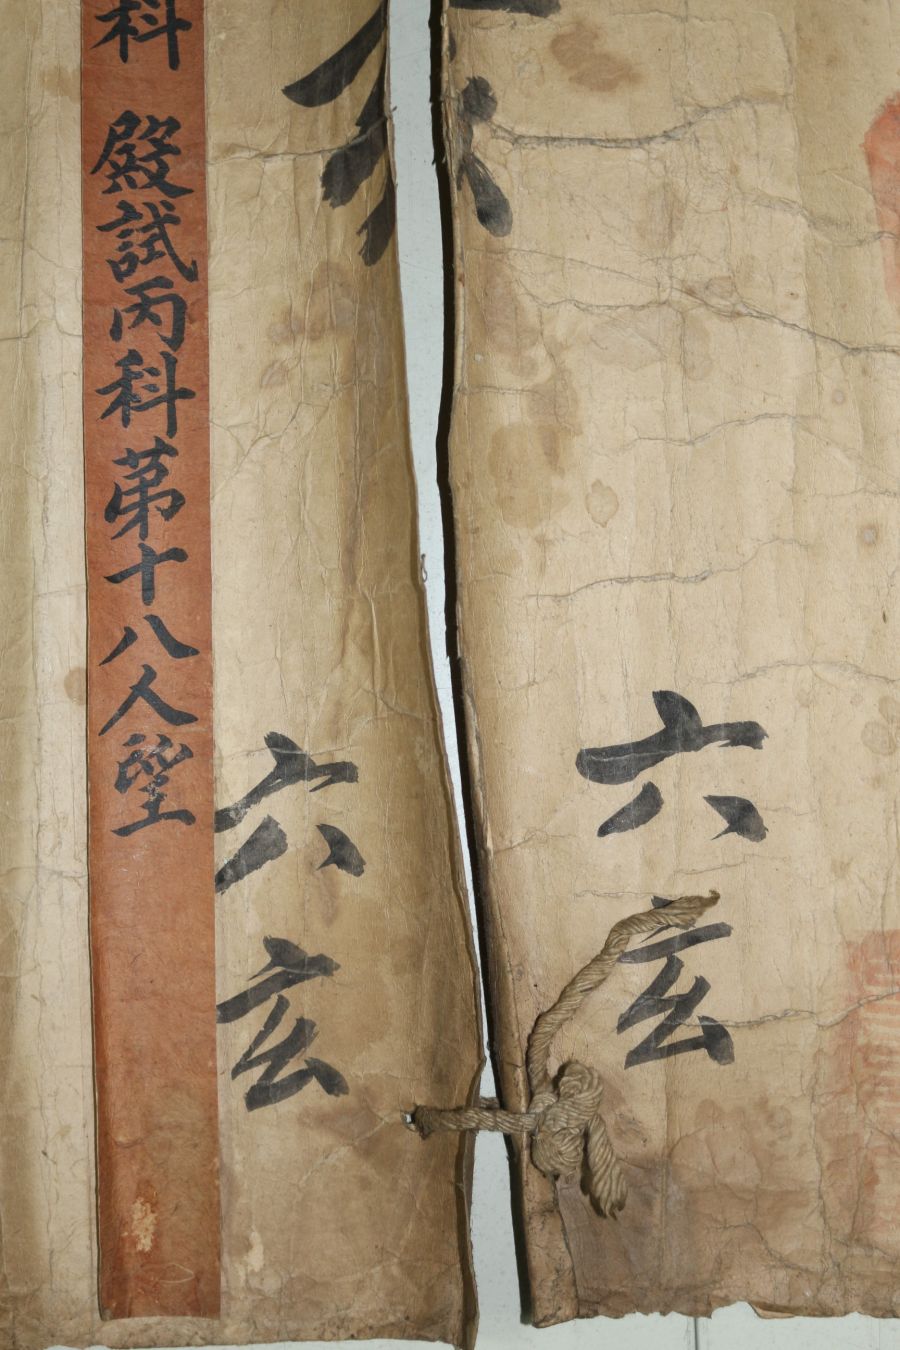 科 殿試丙科第十八人望
六
玄
六
玄